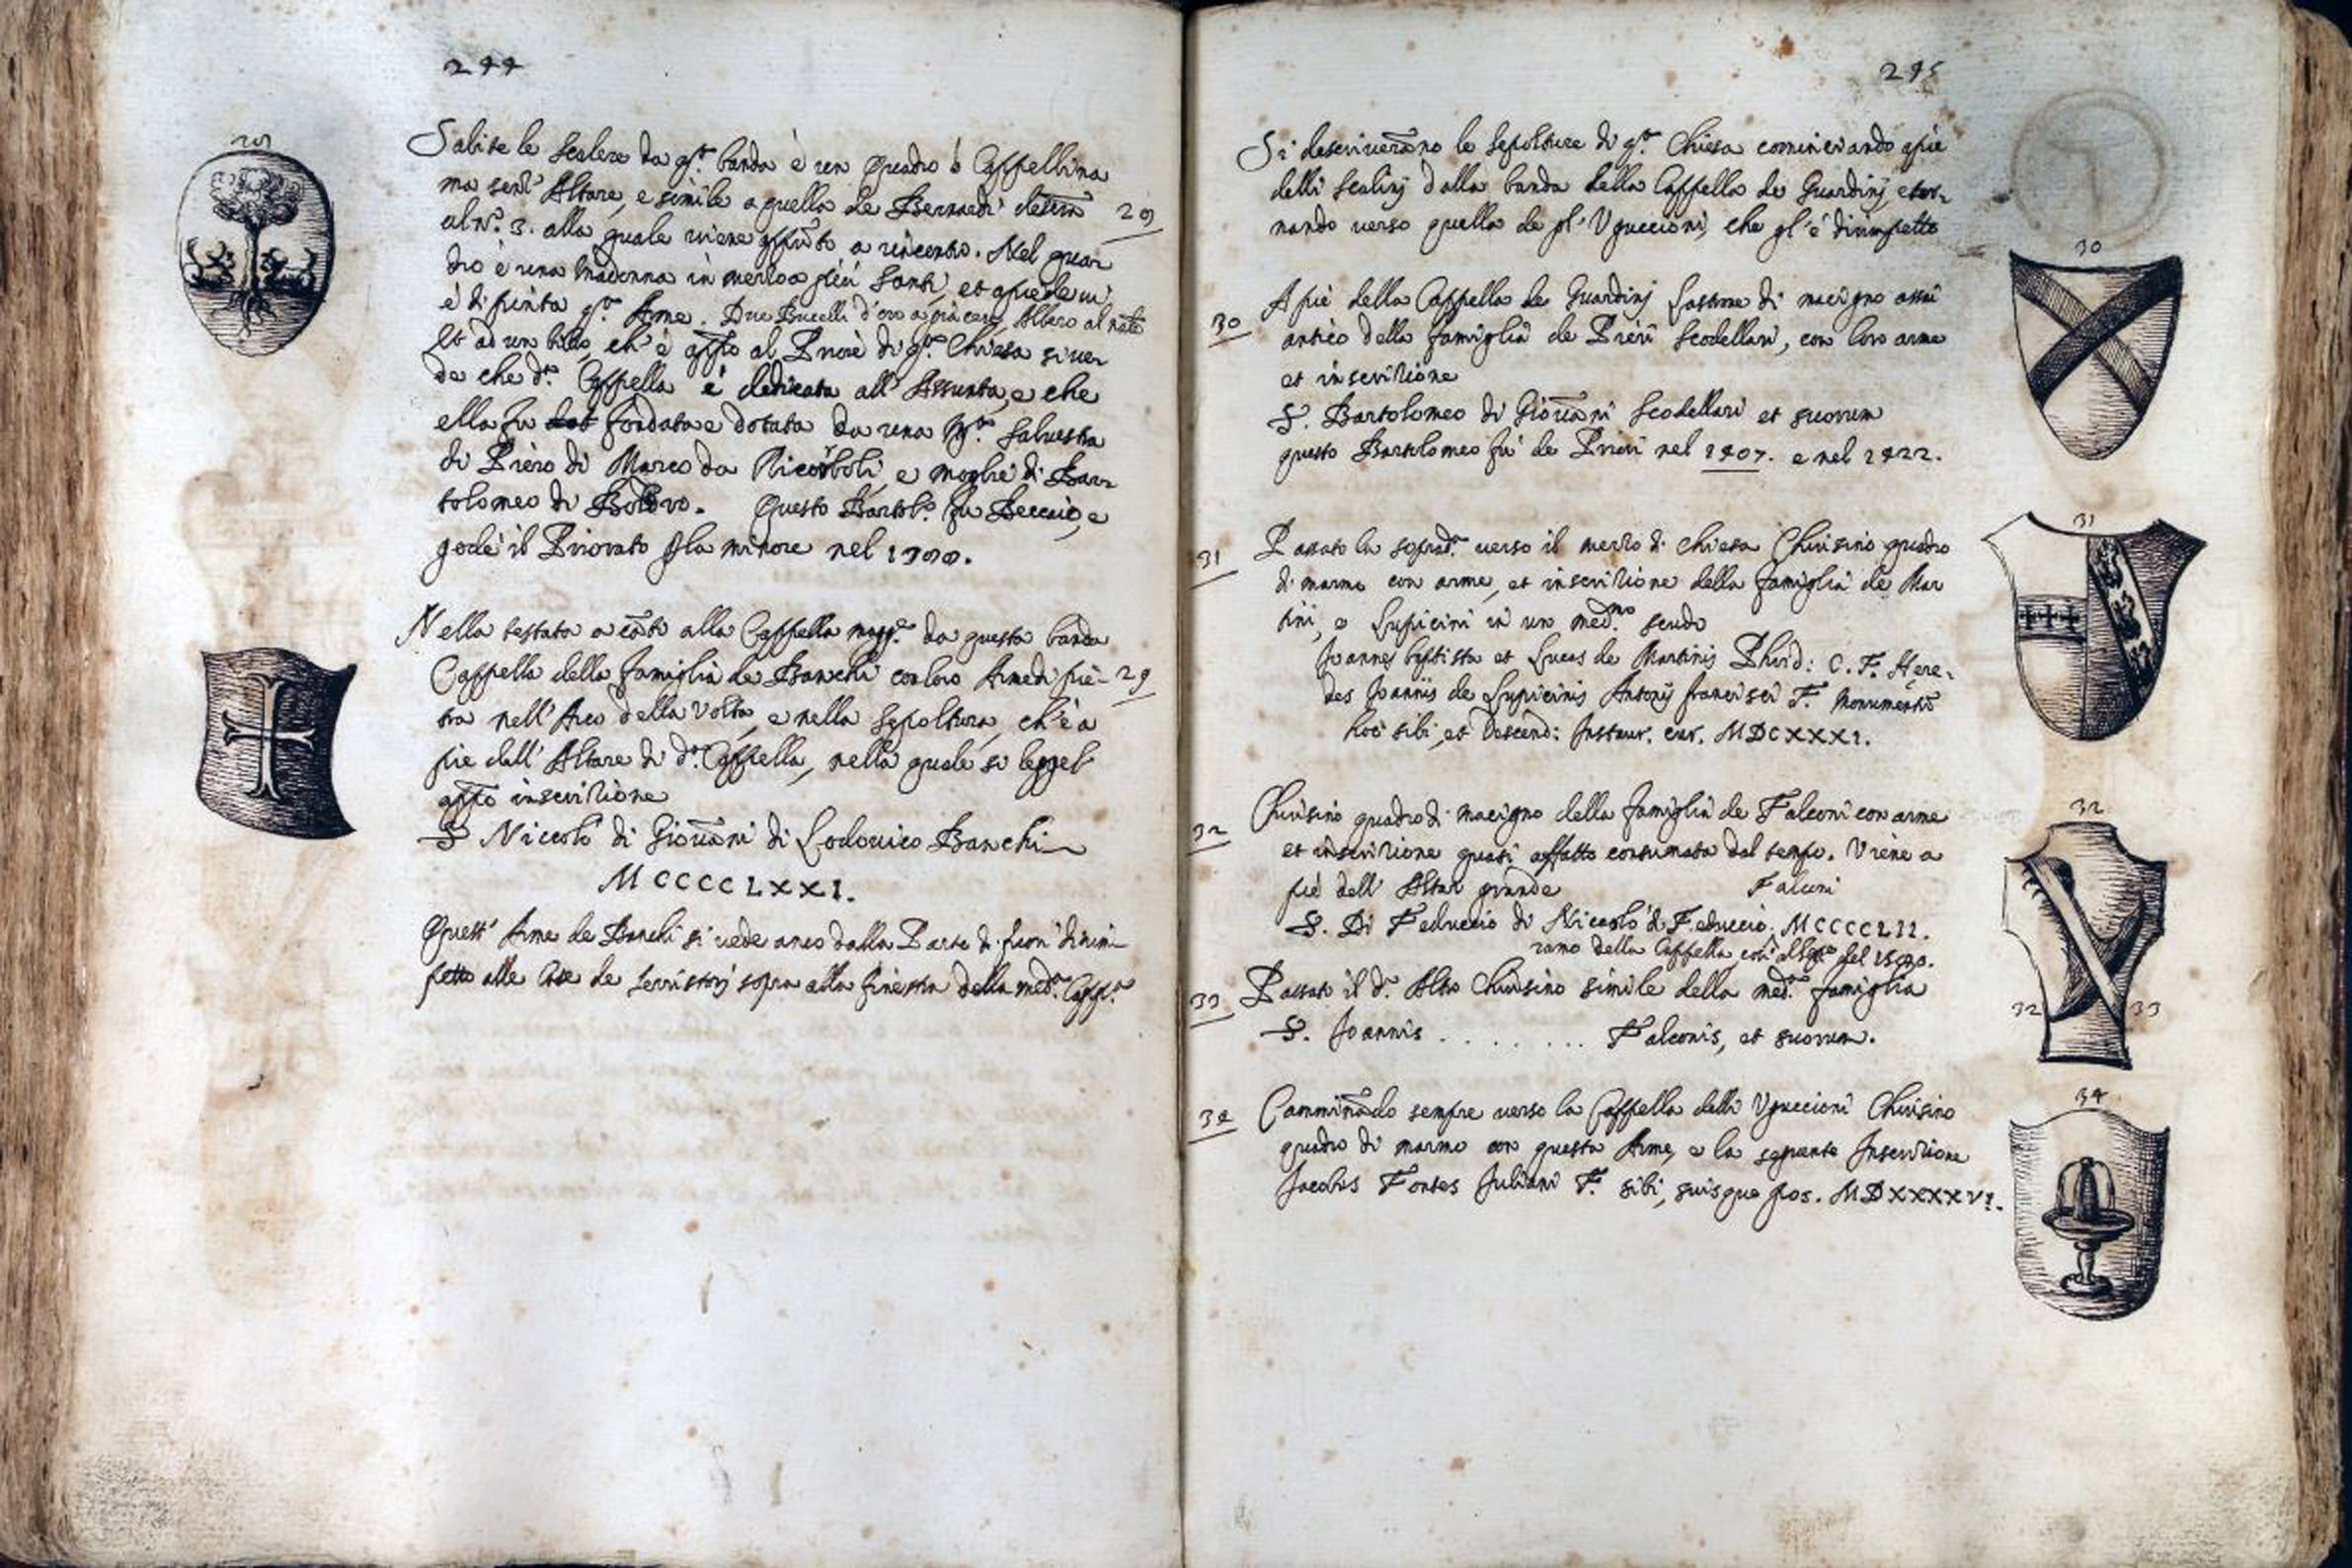 244
28
Salite le scalere da q.ta banda è un Quadro ò Cappellina
ma senz' Altare, e simile a quella de Bernardi descritta 28
al N.o 3. alla quale viene a rincontro. Nel qua
dro è una Madonna in mezzo più Santi, et a piede vi
è dipinta q.ta Arme. Due Bucelli d'oro a giacere, Albero al nãle
Et ad un ch' è al Priore di q.ta Chiesa si ve
de che d.ta Cappella è dedicata all' Assunta, e che
ella fu fondata e dotata da una M.a Salvestra
di Piero di Marco da Ricorboli, e moglie di Bar
tolomeo di Questo Bartol.o fu Beccaio, e
godè il Priorato p la minore nel
Nella testata a cãto alla Cappella magg.e da questa banda
Cappella della famiglia de Banchi con loro Arme di pie- 29
tra nell' Arco della Volta, e nella sepoltura, ch' è a
piè dell' Altare di d.a Cappella, nella quale si legge l'
inscrizione
S Niccolò di Giovãni di Lodovico Banchi
MCCCCLXXI.
Quest' Arme de Banchi si vede anco dalla Parte di fuori dirim
petto alle Case de Serristorj sopra alla finestra della med.a Capp.a
245
Si descriverãno le sepolture di q.ta Chiesa cominciando a piè
delli scalinj dalla banda della Cappella de Guardinj e tor-
nando verso quella de gl' Uguccioni, che gl' è dirimpetto
30
30 A piè della Cappella de Guardinj lastrone di macigno assai
antico della famiglia de Pieri Scodellari, con loro arme
et inscrizione
S. Bartolomeo di Giovãni Scodellari et suorum
questo Bartolomeo fù de Priori nel 1407. e nel 1422.
31
31 Passato la soprad.a verso il mezzo di chiesa Chiusino quadro
di marmo con arme, et inscrizione della famiglia de Mar
tini, e Lupicini in un med.mo scudo
Joannes baptista et Lucas de Martinis Phrid: C. F. Here-
des Joannis de Lupicinis Antonij francisci F. Monumentũ
hoc sibi, et Descend: Instaur. cur. MDCXXXI.
32
32 Chiusino quadro di macigno della famiglia de Falconi con arme
et inscrizione quasi affatto consumata dal tempo. Viene a
piè dell' Altar grande Falconi
S. Di Feduccio di Niccolò di Feduccio. MCCCCLII.
ramo della Cappella
33 Passato il d.o Altro Chiusino simile della med.a famiglia
32 33
S. Joannis . . . . . . . Falconis, et suorum.
34
34 Camminãdo sempre verso la Cappella delli Uguccioni Chiusino
quadro di marmo con questa Arme, e la seguente Inscrizione
Jacobus Fontes Juliani F. sibi, suisque pos. MDXXXXVI.